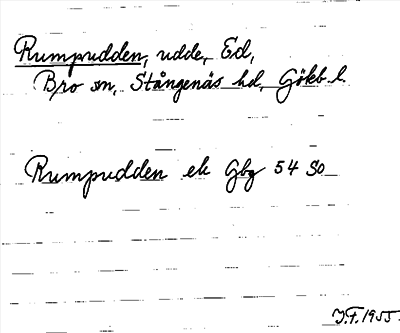 Rumpudden, udde, Ed,
Bro sn, Stångenäs hd, Götb. l.
Rumpudden ek Gbg 54 So
J.F. 1955.